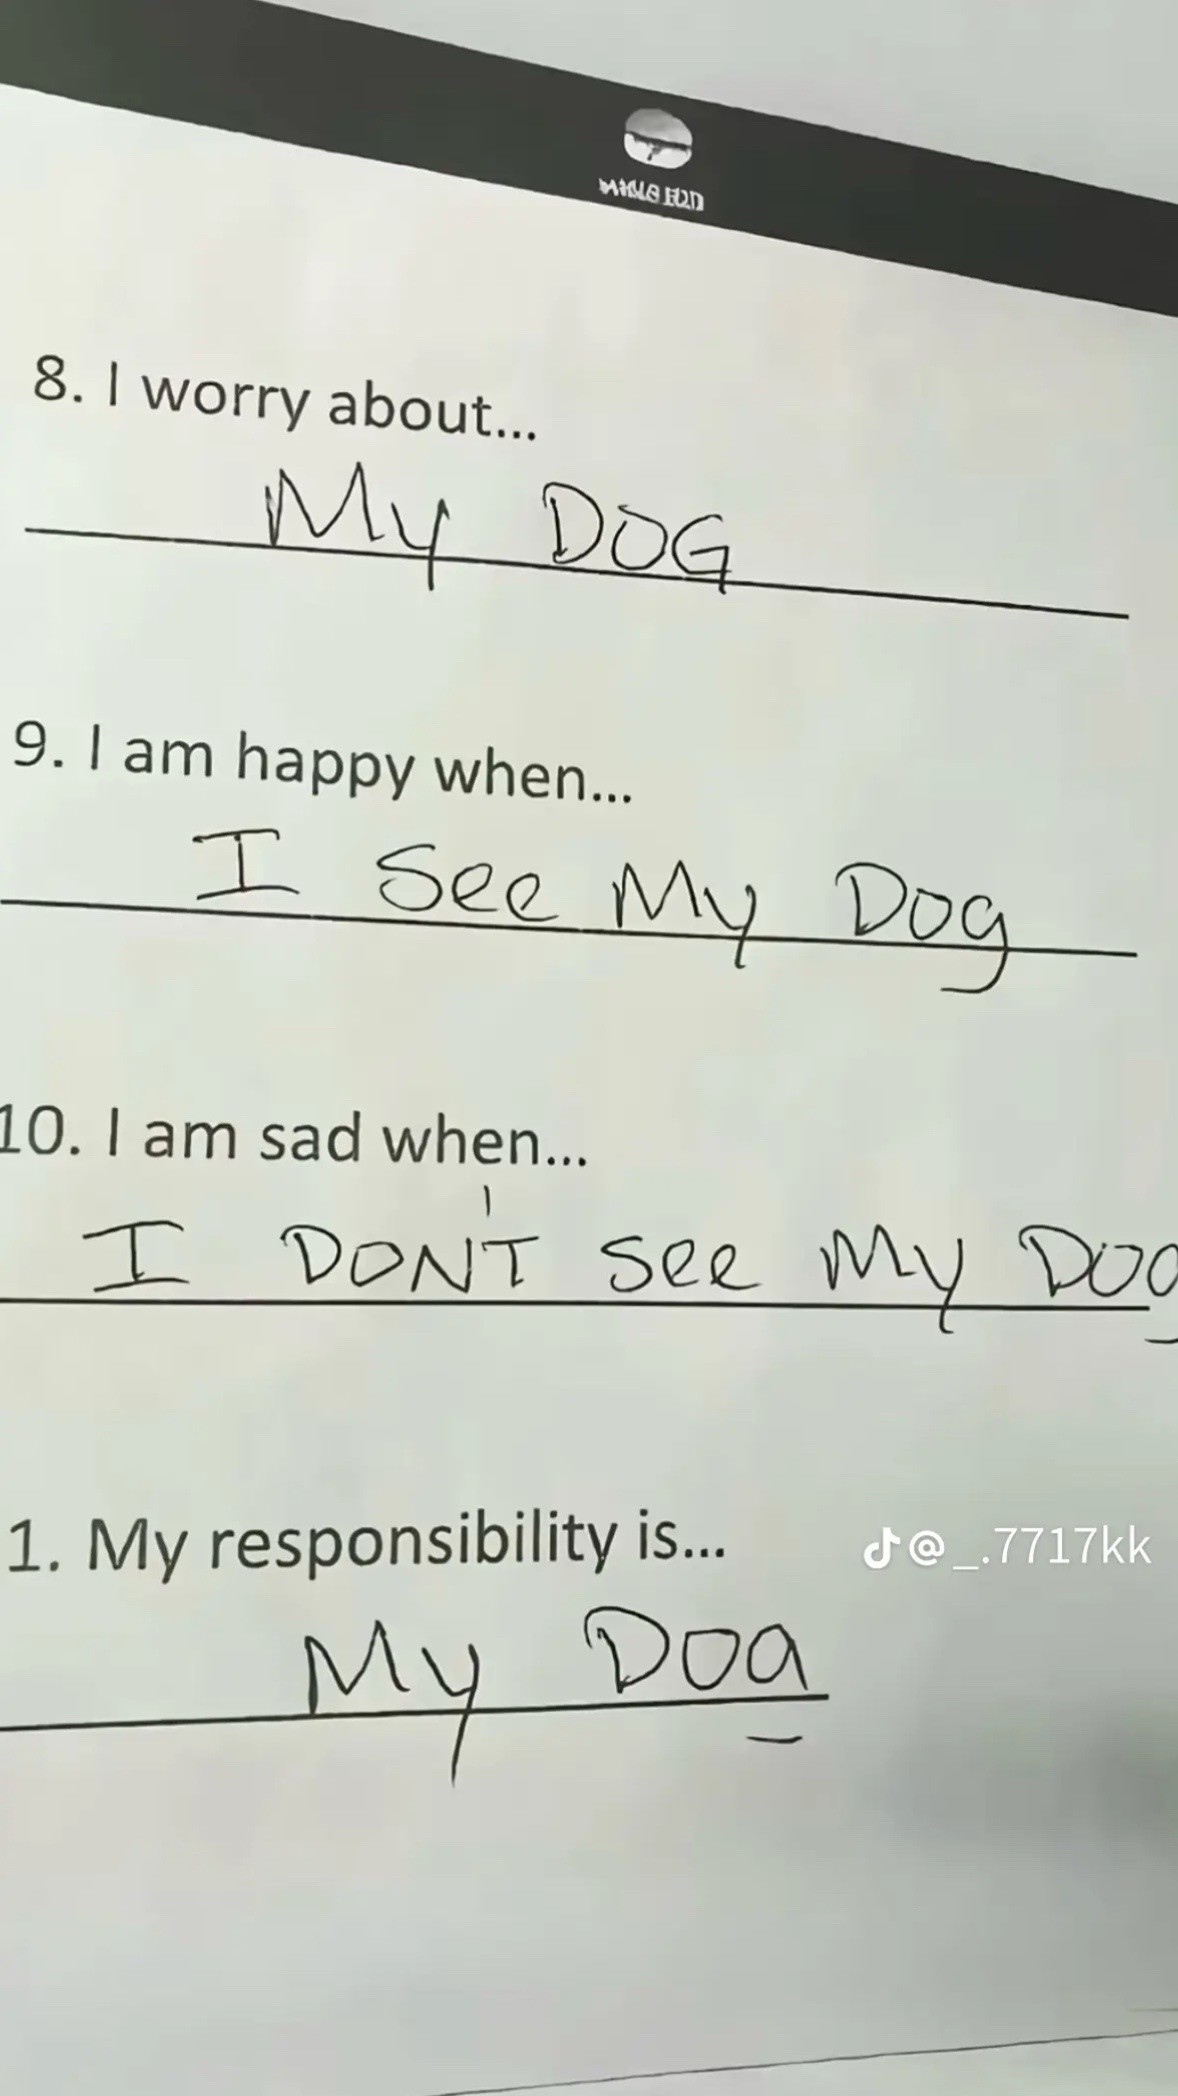 8. I worry about...
My DOG
9. I am happy when...
I See My Dog
10. I am sad when...
I DON'T see My Dog
1. My responsibility is...
@_.7717kk
My Dog